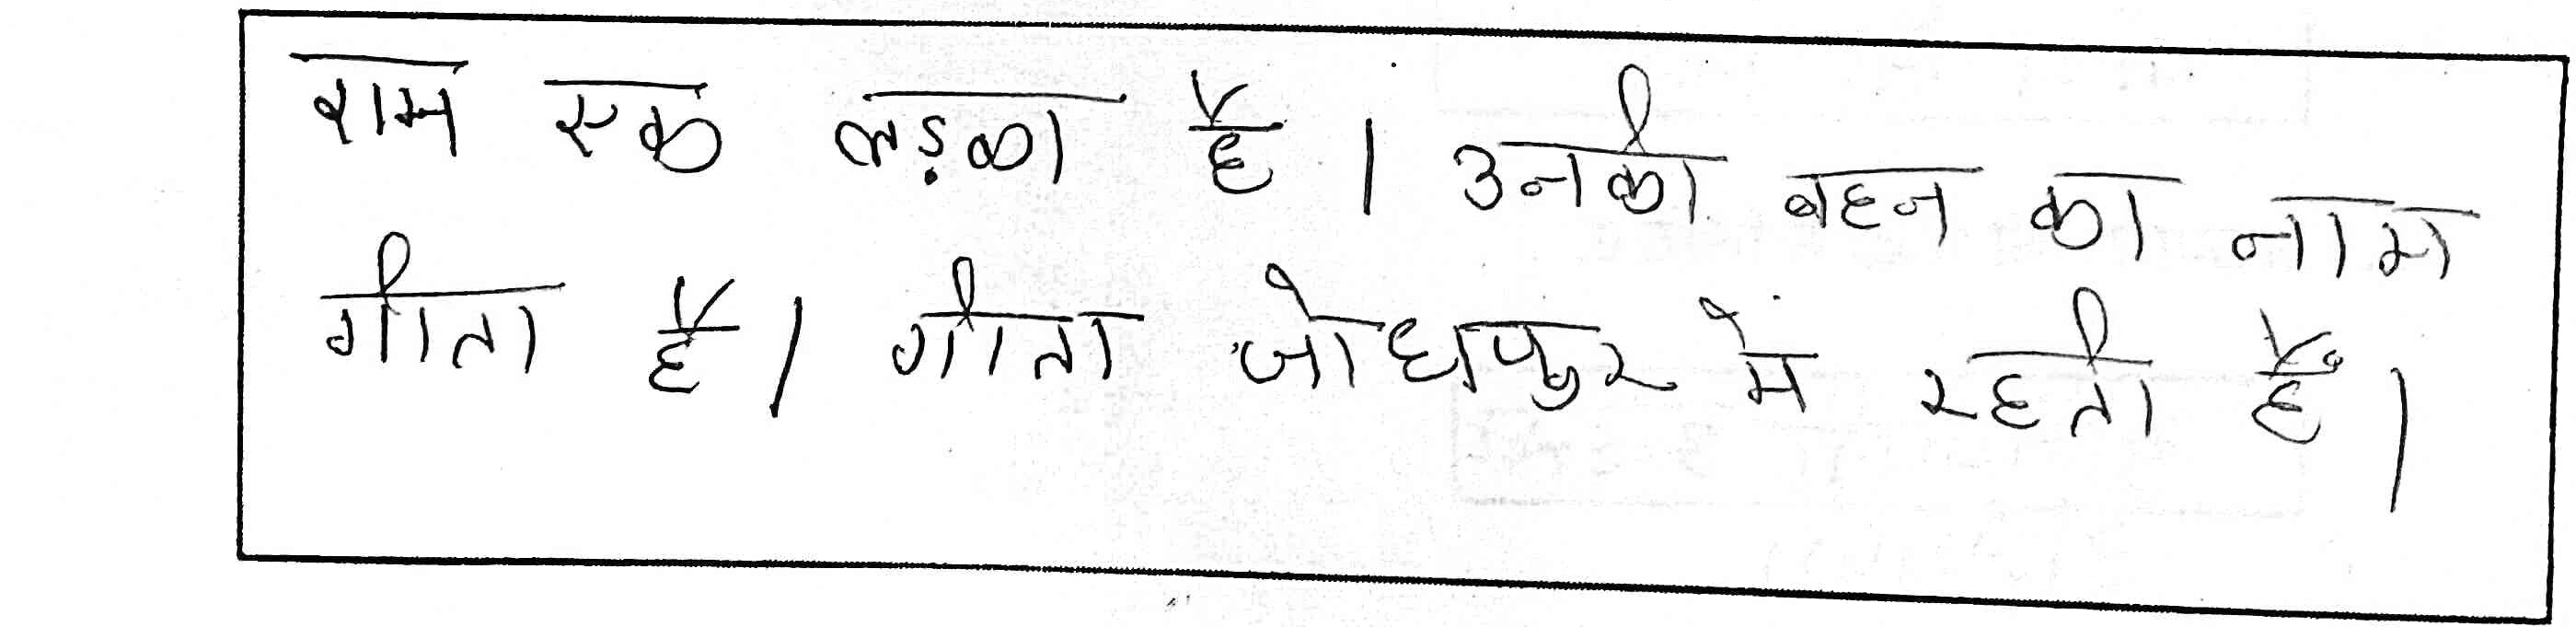 राम एक लड़का है। उनकी बहन का नाम
गीता है। गीता जोधपुर मे रहती हैं।